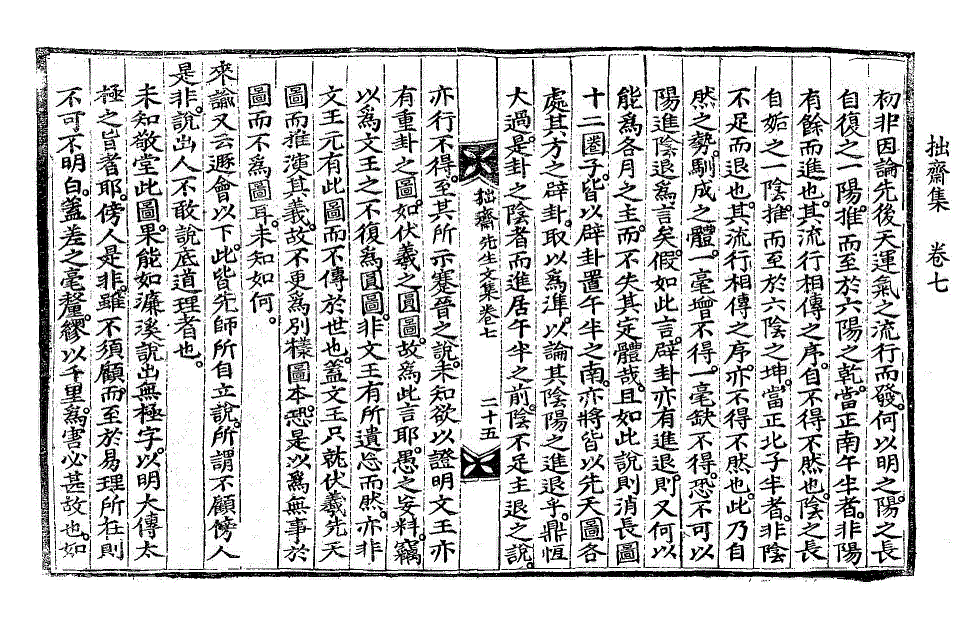 拙齋集　卷七
初非因論先後天運氣之流行而發。何以明之。陽之長
自復之一陽。推而至於六陽之乾。當正南午半者。非陽
有餘而進也。其流行相傳之序。自不得不然也。陰之長
自姤之一陰。推而至於六陰之坤。當正北子半者。非陰
不足而退也。其流行相傳之序。亦不得不然也。此乃自
然之勢。馴成之體。一毫增不得。一毫缺不得。恐不可以
陽進陰退爲言矣。假如此言。辟卦亦有進退。則又何以
能爲各月之主。而不失其定體哉。且如此說則消長圖
十二圈子。皆以辟卦置午半之南。亦將皆以先天圖各
處其方之辟卦。取以爲準。以論其陰陽之進退乎。鼎恒
大過。是卦之陰者而進居午半之前。陰不足主退之說。
拙齋先生文集卷七　二十五
亦行不得。至其所示蹇晉之說。未知欲以證明文王亦
有重卦之圖。如伏羲之圓圖。故爲此言耶。愚之妄料。竊
以爲文王之不復爲圓圖。非文王有所遺忘而然。亦非
文王元有此圖而不傳於世也。蓋文王只就伏羲先天
圖而推演其義。故不更爲別樣圖本。恐是以爲無事於
圖而不爲圖耳。未知如何。
來諭又云遯會以下。此皆先師所自立說。所謂不顧傍人
是非。說出人不敢說底道理者也。
未知敬堂此圖。果能如濂溪說出無極字。以明大傳太
極之旨者耶。傍人是非。雖不須顧。而至於易理所在則
不可不明白。蓋差之毫釐。繆以千里。爲害必甚故也。如